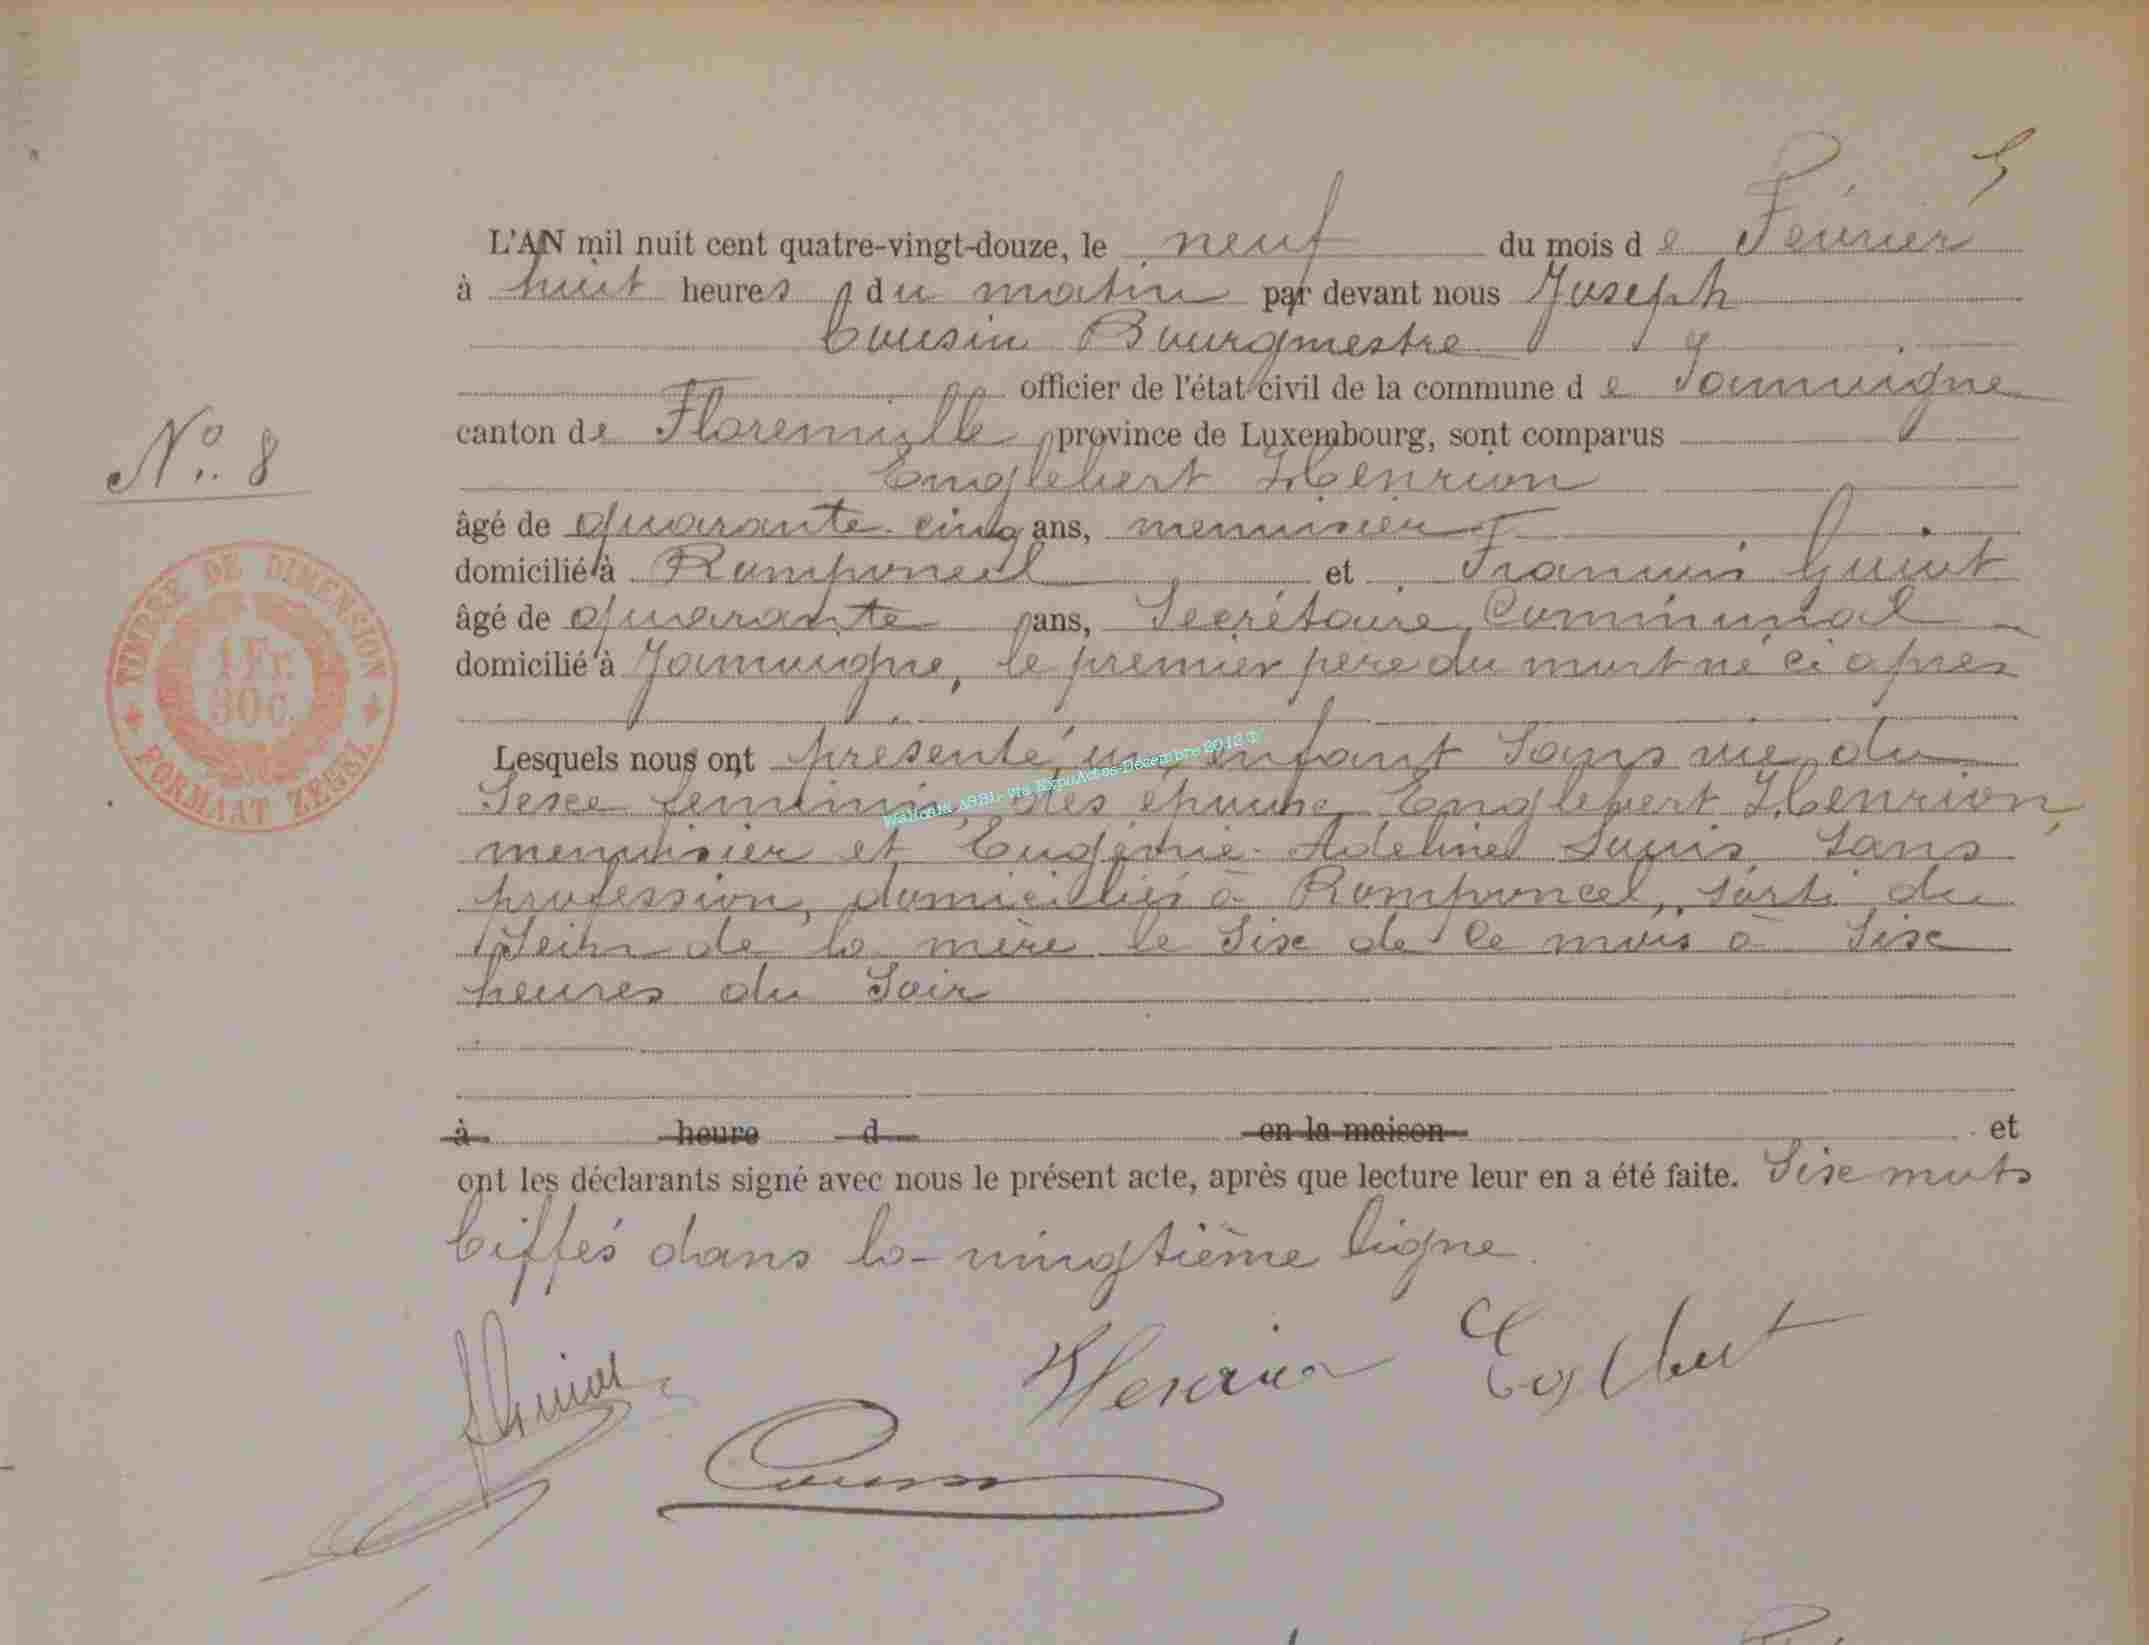 5
L'AN mil huit cent quatre-vingt-douze, le neuf du mois de Février
à huit heures du matin par devant nous Joseph
Cousin Bourgmestre
officier de l'état civil de la commune de Jamoigne
canton de Florenville province de Luxembourg, sont comparus
N° 8
Englebert Henrion
âgé de quarante cinq ans, menuisier
domicilié à Romponcel et François Guiot
âgé de quarante ans, Secrétaire Communal
domicilié à Jamoigne, le premier père du mort né ci après
TIMBRE DE DIMENSION
1 Fr.
30 c.
FORMAAT ZEGEL
Lesquels nous ont présenté un enfant Sans vie du
Sexe féminin, des époux Englebert Henrion,
menuisier et Eugénie Adeline Louis Sans
profession, domiciliés à Romponcel, Sorti du
Sein de la mère le Six de Ce mois à Six
heures du Soir
Wallonia ASBL via ExpoActes-Décembre 2012
à heure d en la maison et
ont les déclarants signé avec nous le présent acte, après que lecture leur en a été faite. Six mots
biffés dans la vingtième ligne.
Guiot Henrion Englebert
Cousin